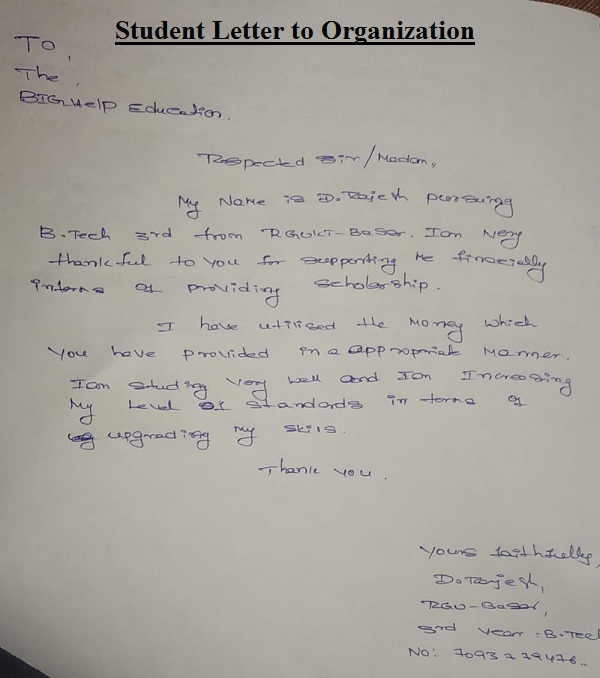 Student Letter to Organization
To,
The,
BIG Help Education.
Respected Sir/Madam,
My Name is D. Rajesh pursuing
B.Tech 3rd from RGUKT-Basar. Iam Very
thankful to you for supporting me finacially
interms of providing scholarship.
I have utilised the Money which
you have provided in a appropriate Manner.
Iam studying very well and Iam Increasing
My Level of standards in terms of
upgrading my skils.
Thank you.
Yours faithfully,
D. Rajesh,
RGU-Basar,
3rd year :B.Tech